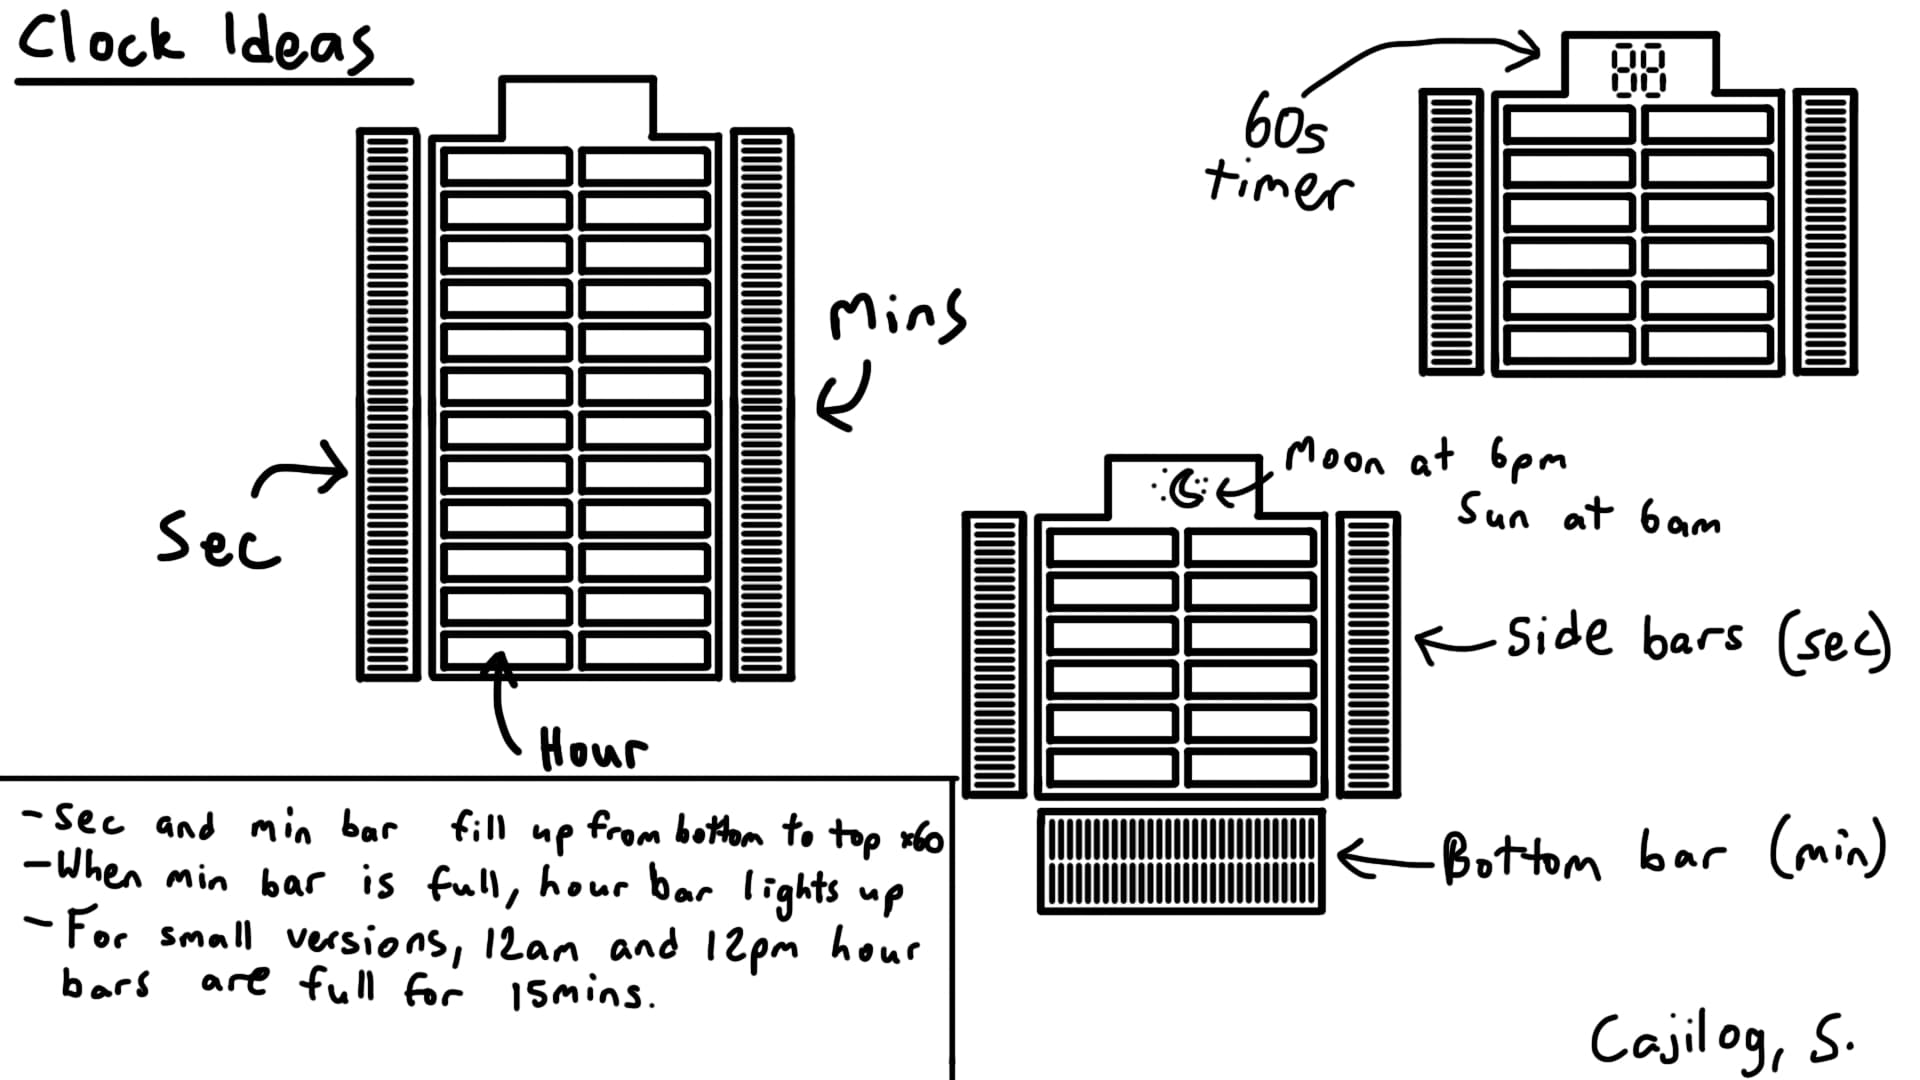 Clock Ideas
Sec
Mins
Hour
60s
timer
88
Moon at 6pm
Sun at 6am
Side bars (sec)
Bottom bar (min)
- Sec and min bar fill up from bottom to top x60
- When min bar is full, hour bar lights up
- For small versions, 12am and 12pm hour
bars are full for 15mins.
Cajilog, S.